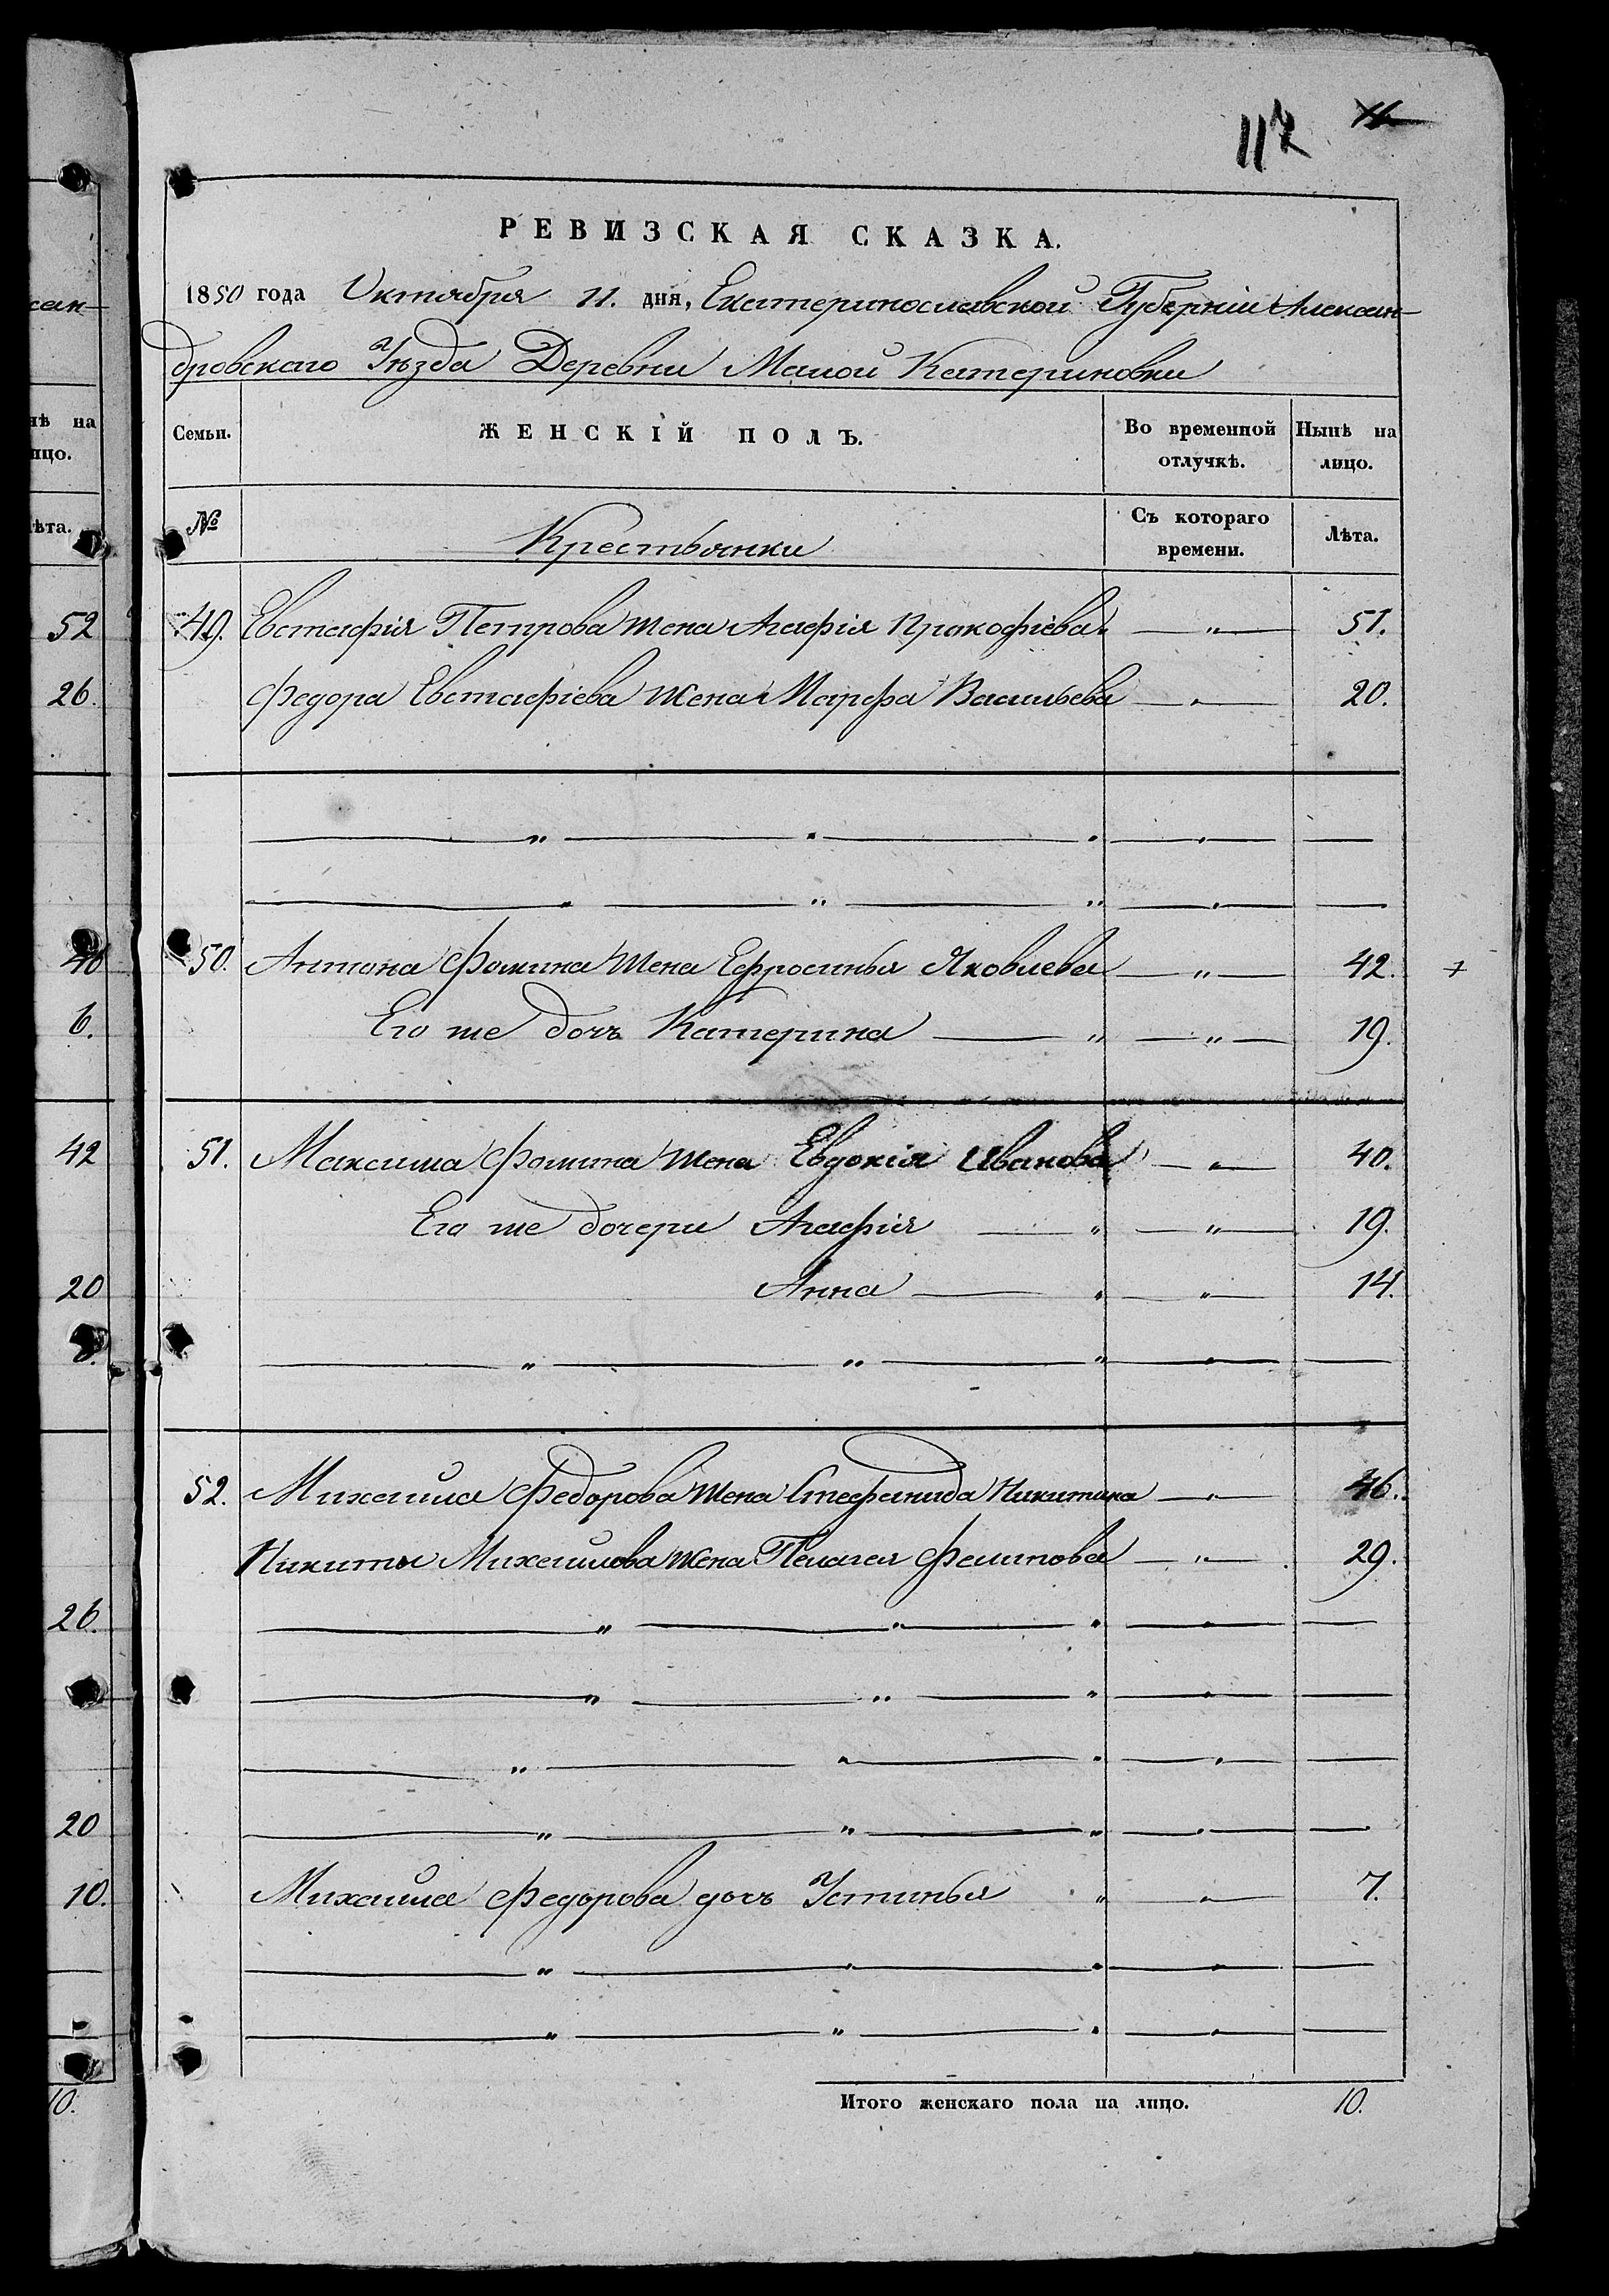 117
РЕВИЗСКАЯ СКАЗКА.
1850 года Октября 11. дня, Екатеринославской Губерніи Алексан-
дровскаго Уѣзда Деревни Малой Катериновки
Семьи. ЖЕНСКІЙ ПОЛЪ. Во временной отлучкѣ. Нынѣ на лицо.
№ Крестьянки Съ котораго времени. Лѣта.
49. Евстафія Петрова жена Агафія Прокофіева " — " — 51.
Федора Евстафіева жена Марфа Васильева — " — 20.
50. Антона Фомина жена Ефросинья Яковлева — " — 42. +
Его же дочь Катерина — " — " — 19.
51. Максима Фомина жена Евдокія Иванова — " — 40.
Его же дочери Агафія — " — " — 19.
Анна — " — " — 14.
52. Михаила Федорова жена Стефанида Никитина — " — 46.
Никиты Михайлова жена Пелагея Филипова — " — 29.
Михаила Федорова дочь Устинья " — " — 7.
Итого женскаго пола на лицо. 10.
сан-
нѣ на
ицо.
ѣта.
52
26.
40
6.
42
20
26.
20
10.
10.